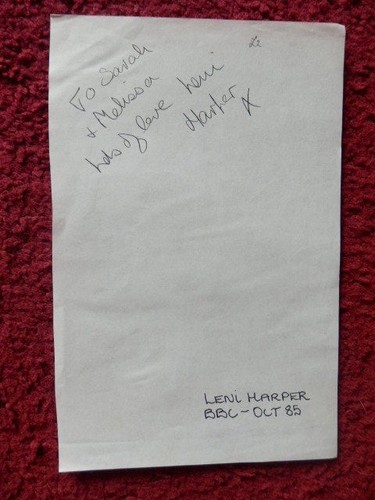 Le
To Sarah
& Melissa
Lots of love Leni
Harper
X
LENI HARPER
BBC - OCT 85